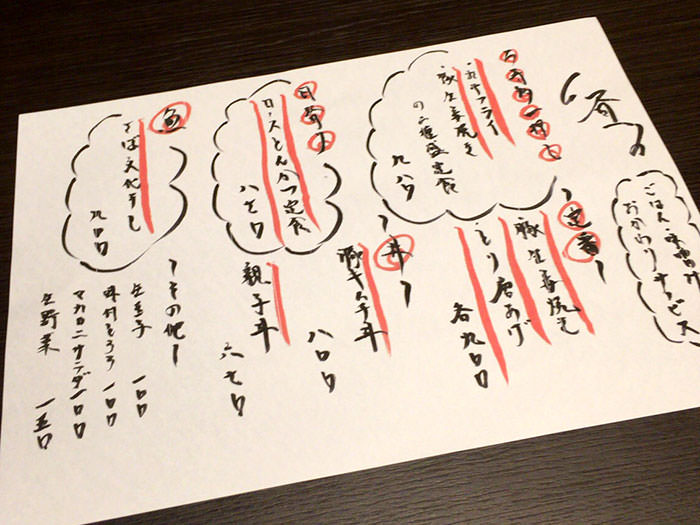 ごはん・味噌汁
おかわりサービス
・カキフライ
・豚生姜焼き
の二種盛定食
九八〇
〜定番〜
豚生姜焼き
とり唐あげ
各九〇〇
日替り
ロースとんかつ定食
〜丼〜
豚キムチ丼
八〇〇
親子丼
魚
さば文化干し
九〇〇
〜その他〜
生玉子 一〇〇
味付とろろ 一〇〇
マカロニサラダ 一〇〇
生野菜 一五〇